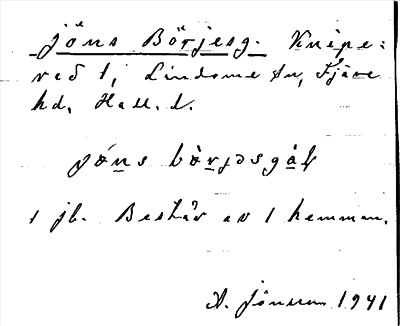 Jöns Börjesg. Knipe:
red 1, Lindome sn, Fjäre
hd, Hall. l.
jǿns bɷ̀rjəsgål
1 jb. Består av 1 hemman.
A. Jönsson 1941